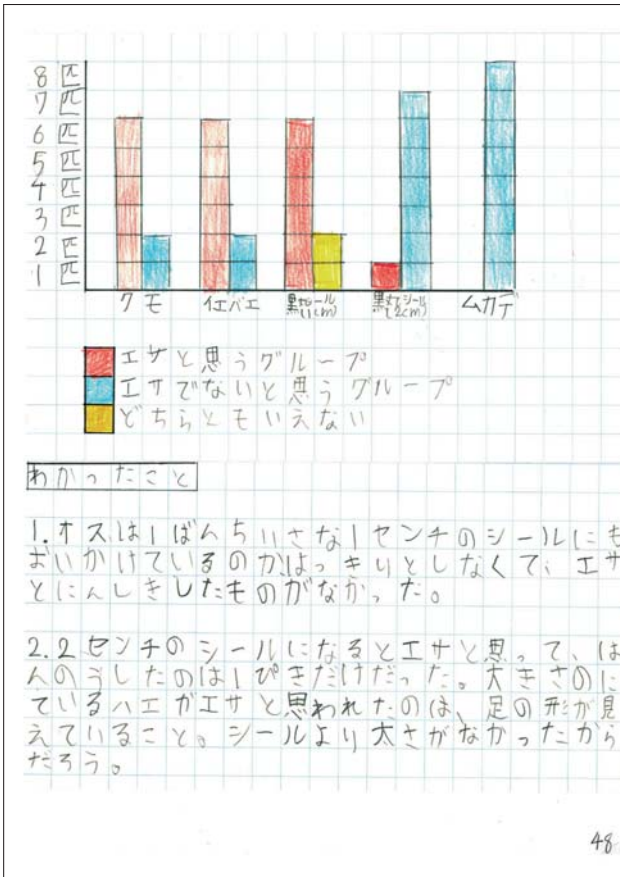 8匹
7匹
6匹
5匹
4匹
3匹
2匹
1匹
クモ
イエバエ
黒丸シール
(1cm)
黒丸シール
(2cm)
ムカデ
エサと思うグループ
エサでないと思うグループ
どちらともいえない
わかったこと
1.オスは1ばんちいさな1センチのシールにも
おいかけているのかはっきりとしなくて、エサ
とにんしきしたものがなかった。
2.2センチのシールになるとエサと思って、は
んのうしたのは1ぴきだけだった。大きさのに
ているハエがエサと思われたのは、足の形が見
えていること。シールより太さがなかったから
だろう。
48